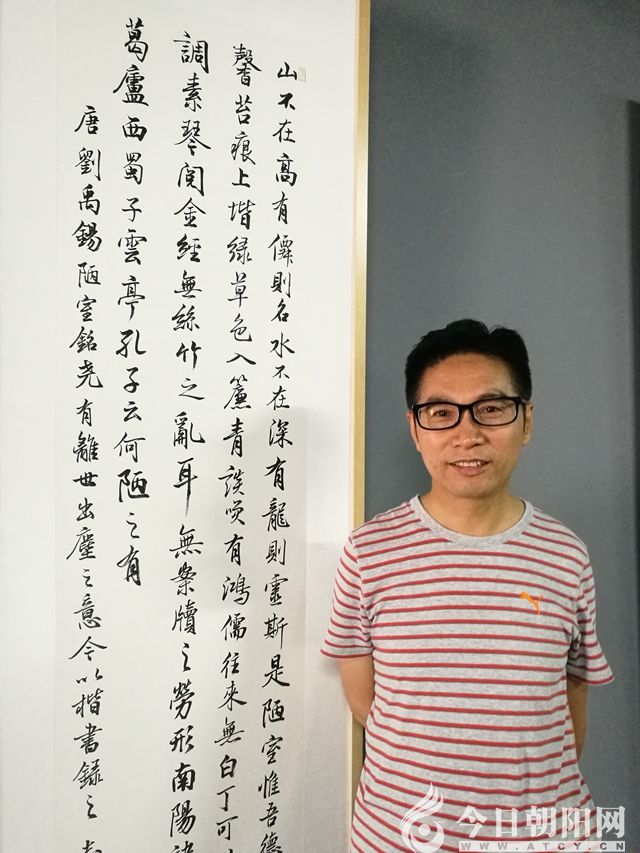 山不在高有僊則名水不在深有龍則靈斯是陋室惟吾德
馨苔痕上堦緑草色入簾青談笑有鴻儒往來無白丁可
調素琴閱金經無絲竹之亂耳無案牘之勞形南陽諸
葛廬西蜀子雲亭孔子云何陋之有
唐劉禹錫陋室銘尧有離世出塵之意今以楷書錄之
今日朝阳网
WWW.ATCY.CN